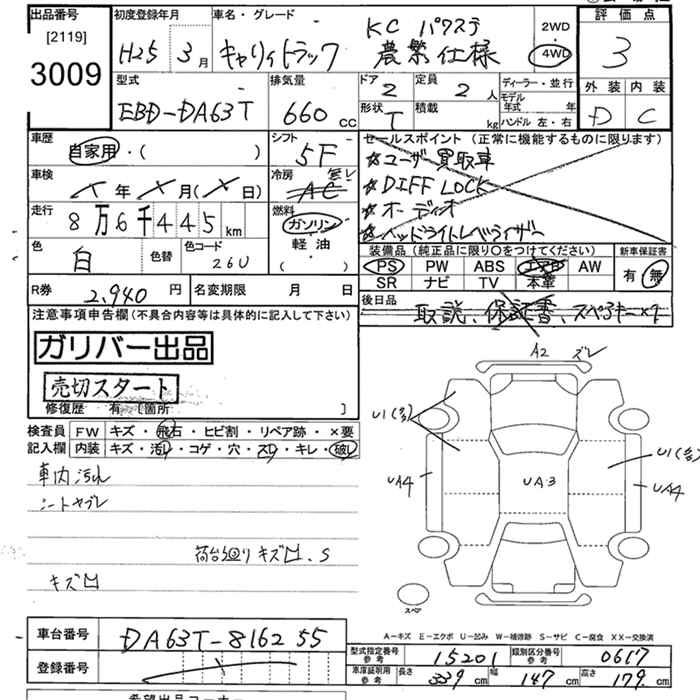 出品番号 初度登録年月 車名・グレード 評価点
[2119] H25年 3月 キャリィトラック KC パワステ 2WD
3009 農繁仕様 4WD 3
型式 排気量 ドア 定員 ディーラー・並行 外装 内装
EBD-DA63T 660cc 2 2人 モデル年式 年 D C
形状 T 積載 kg ハンドル 左・右
車歴 自家用・( ) シフト 5F セールスポイント (正常に機能するものに限ります)
☆ユーザー買取車
車検 年 月( 日) 冷房 AC 無し ☆DIFF LOCK
走行 8万6千445km 燃料 ガソリン ☆オーディオ
軽油 ☆ヘッドライトレベライザー
( )
色 白 色替 色コード 26U 装備品 (純正品に限り〇をつけてください) 新車保証書
PS PW ABS エアB AW 有・無
SR ナビ TV 本革
R券 2,940円 名変期限 月 日 後日品 取説、保証書、スペアキー×1
注意事項申告欄(不具合内容等は具体的に記入して下さい)
ガリバー出品
売切スタート
修復歴 有 [箇所 ]
検査員 FW キズ・飛石・ヒビ割・リペア跡・×要
記入欄 内装 キズ・汚レ・コゲ・穴・スレ・キレ・破レ
車内汚れ
シートヤブレ
荷台回り キズ凹、S
キズ凹
A2 ズレ
U1(多)
U1(多)
UA4 UA3 UA4
スペア
A-キズ E-エクボ U-凹み W-補修跡 S-サビ C-腐食 XX-交換済
車台番号 DA63T-816255
型式指定番号 参考 15201 類別区分番号 参考 0617
登録番号 車庫証明用 参考 長さ 339cm 幅 147cm 高さ 179cm
希望出品コーナー